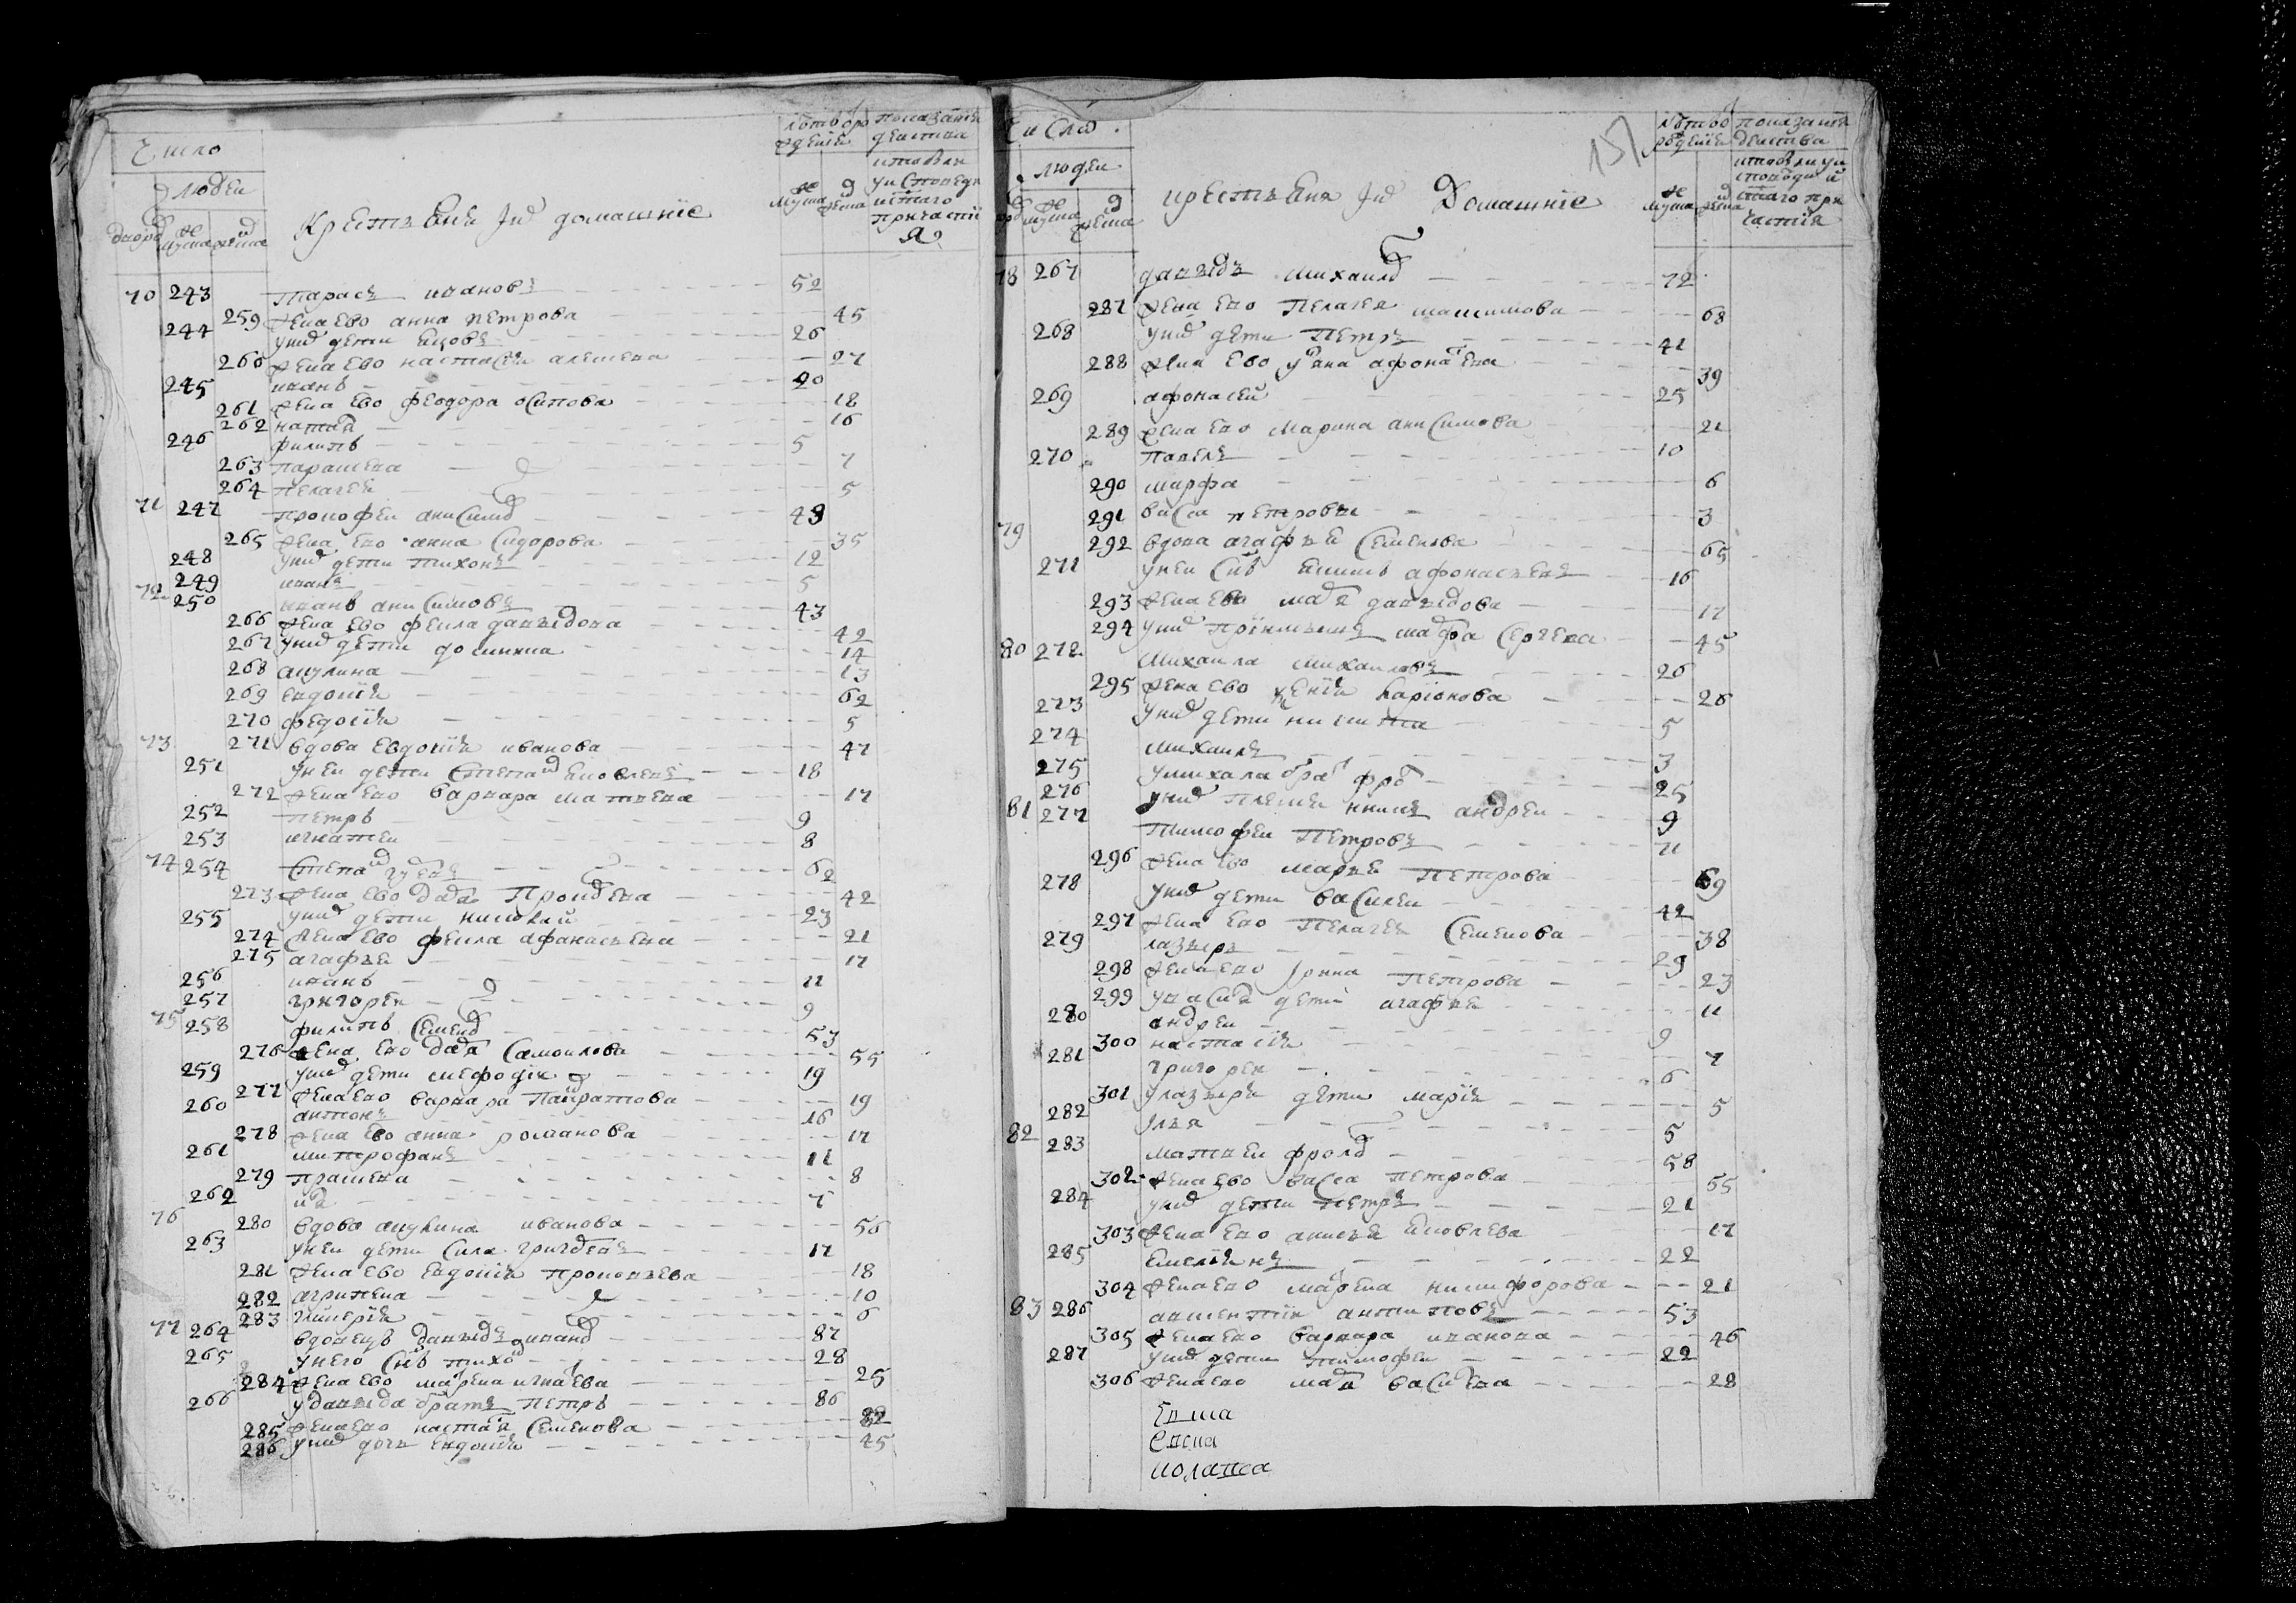 Число
людеи
дворо муска женска
Крестьяне и домашние
лѣтъ рожденiя
муска женска
показанiя действа
70 243 Тарасъ ивановъ 52
259 жена ево анна петрова 45
244 у них дети яковъ 26
260 жена ево настася алексеева 27
245 иванъ 20
261 жена ево феодора осипова 18
262 наталя 16
246 филипъ 5
263 парасковя 7
264 пелагея 5
71 247 прокофеи анисимо 43
265 жена ево анна сидорова 35
248 у них дети тихонъ 12
249 иванъ 5
72 250 иванъ анисимовъ 43
266 жена ево фекла давыдова 42
267 у них дети домникиа 14
268 акулина 13
269 евдокiя 62
270 федосiя 5
73 271 вдова евдокiя иванова 47
251 у неи дети степан яковлевъ 18
272 жена ево варвара матвеева 17
252 петръ 9
253 игнатеи 8
74 254 степан гуревъ 62
273 жена ево даря 42
255 у них дети николаи 23
274 жена ево фекла афанасьева 21
275 агафья 17
256 иванъ 11
257 григореи 9
75 258 филипъ семено 53
276 жена ево даря самоилова 55
259 у них дети мефодiи 19
277 жена ево варвара панкратова 19
260 антонъ 16
278 жена ево анна романова 17
261 митрофанъ 11
279 прасковя 8
262 7
76 280 вдова акулина иванова 56
263 у неи дети сила григоревъ 17
281 жена ево евдокiя прокопьева 18
282 агрипена 10
283 гликерiя 6
77 264 вдовецъ давыдъ ивано 87
265 у него снъ тихо 28
284 жена ево марена игнаева 25
266 у давыда братъ петръ 86
285 жена ево настая семенова 82
286 у них дочь евдокiя 45
Число
людеи
муска женска
крестьяня и Домашнiе
157
лѣтъ рожденiя
муска женска
показанiя действа
78 267 давыдъ михаило 72
287 жена ево Пелагея максимова 68
268 у них дети Петръ 41
288 жена ево уяна афонаева 39
269 афонасеи 25
289 жена ево Марина анисимова 21
270 Павелъ 10
290 марфа 6
291 васса петровы 3
79 292 вдова агафья семенова 65
271 у неи снъ екимъ афонасьевъ 16
293 жена ево маря давыдова 17
294 у них марфа сергеева 45
80 272 Михаила михаиловъ 26
295 жена ево ксенiя карiонова 26
273 у них дети никита 5
274 михаилъ 3
275 у михала брат фро 25
276 у них племянникъ андреи 9
81 277 Тимофеи Петровъ 71
296 жена ево марья петрова 69
278 у них дети василеи 42
297 жена ево Пелагея семенова 38
279 лазырь 29
298 жена ево Ирина петрова 23
299 у васиа дети агафья 11
280 андреи 9
300 настасiя 7
281 григореи 6
301 у лазыря дети марiя 5
282 Илья 5
82 283 матвеи фроло 58
302 жена ево васса петрова 55
284 у них дети петръ 21
303 жена ево анисья яковлева 17
285 емелiянъ 22
304 жена ево марена никифорова 21
83 286 авксентiи антиповъ 53
305 жена ево варвара иванова 46
287 у них дети тимофеи 22
306 жена ево маря васиева 28